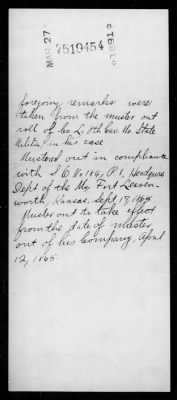 MAR 27
7519454
1891
foregoing remarks were
taken from the muster out
roll of Co. L, 8th Cav. Mo State
Militia, in his case
Mustered out in compliance
with S O No 184, P. 1, Headqrs
Dept of the Mo, Fort Leaven-
worth, Kansas, Sept 17, 1865
Muster out to take effect
from the date of muster
out of his Company, April
12, 1865